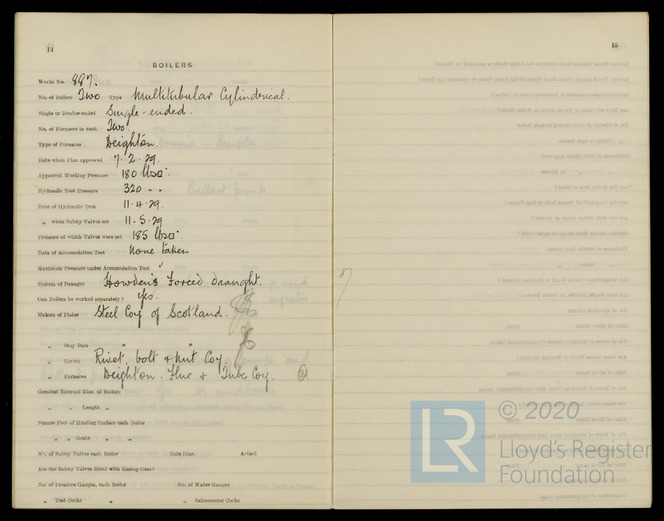 14
BOILERS
Works No. 887.
No. of Boilers Two Type Multitubular Cylindrical.
Single or Double-ended Single-ended.
No. of Furnaces in each Two.
Type of Furnaces Deighton.
Date when Plan approved 7.2.29.
Approved Working Pressure 180 lbs□"
Hydraulic Test Pressure 320 " "
Date of Hydraulic Test 11.4.29.
" when Safety Valves set 11.5.29
Pressure at which Valves were set 185 lbs□"
Date of Accumulation Test None taken
Maximum Pressure under Accumulation Test "
System of Draught Howden's Forced draught.
Can Boilers be worked separately? Yes.
Makers of Plates Steel Coy of Scotland.
" Stay Bars " "
" Rivets Rivet, bolt & Nut Coy.
" Furnaces Deighton. Flue & Tube Coy.
Greatest Internal Diam. of Boilers
" " Length "
Square Feet of Heating Surface each Boiler
" " Grate " "
No. of Safety Valves each Boiler Rule Diam. Actual
Are the Safety Valves fitted with Easing Gear?
No. of Pressure Gauges, each Boiler No. of Water Gauges
" Test Cocks " " Salinometer Cocks
15
LR
© 2020
Lloyd's Register
Foundation